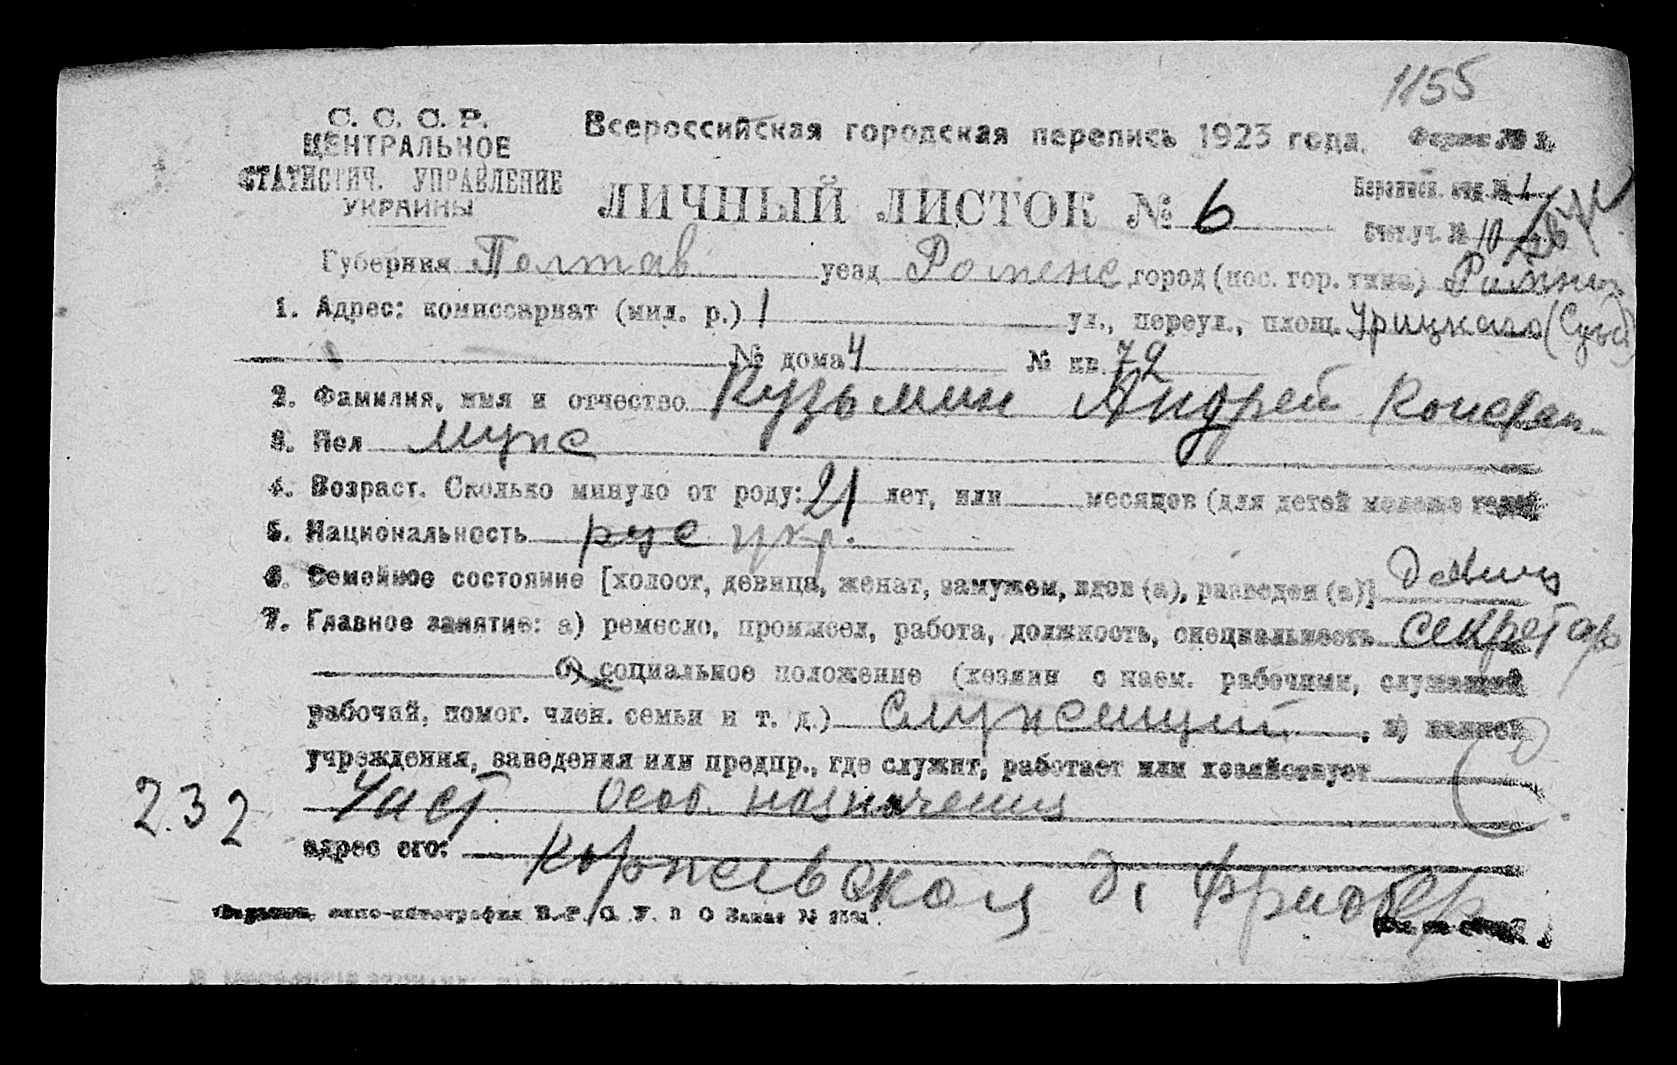 1155
С. С. С. Р.
ЦЕНТРАЛЬНОЕ
СТАТИСТИЧ. УПРАВЛЕНИЕ
УКРАИНЫ
Всероссийская городская перепись 1923 года.
ЛИЧНЫЙ ЛИСТОК № 6
Счет. уч. № 10
Губерния Полтав уезд Роменс город (пос. гор. типа) Ромны
1. Адрес: комиссариат (мил. р.) 1 ул., переул., площ. Урицкого
№ дома 4 № кв.
2. Фамилия, имя и отчество Кузьмин Андрей
3. Пол мужс
4. Возраст. Сколько минуло от роду: 21 лет, или месяцев (для детей моложе
5. Национальность рус укр.
6. Семейное состояние [холост, девица, женат, замужем, вдов (а), разведен (а)]
7. Главное занятие: а) ремесло, промысел, работа, должность, специальность секретарь
б) социальное положение (хозяин с наем. рабочими, служащий
рабочий, помог. член. семьи и т. д.) Служещий, в)
учреждения, заведения или предпр., где служит, работает или хозяйствует
Част. Особ. назначения
232
адрес его: